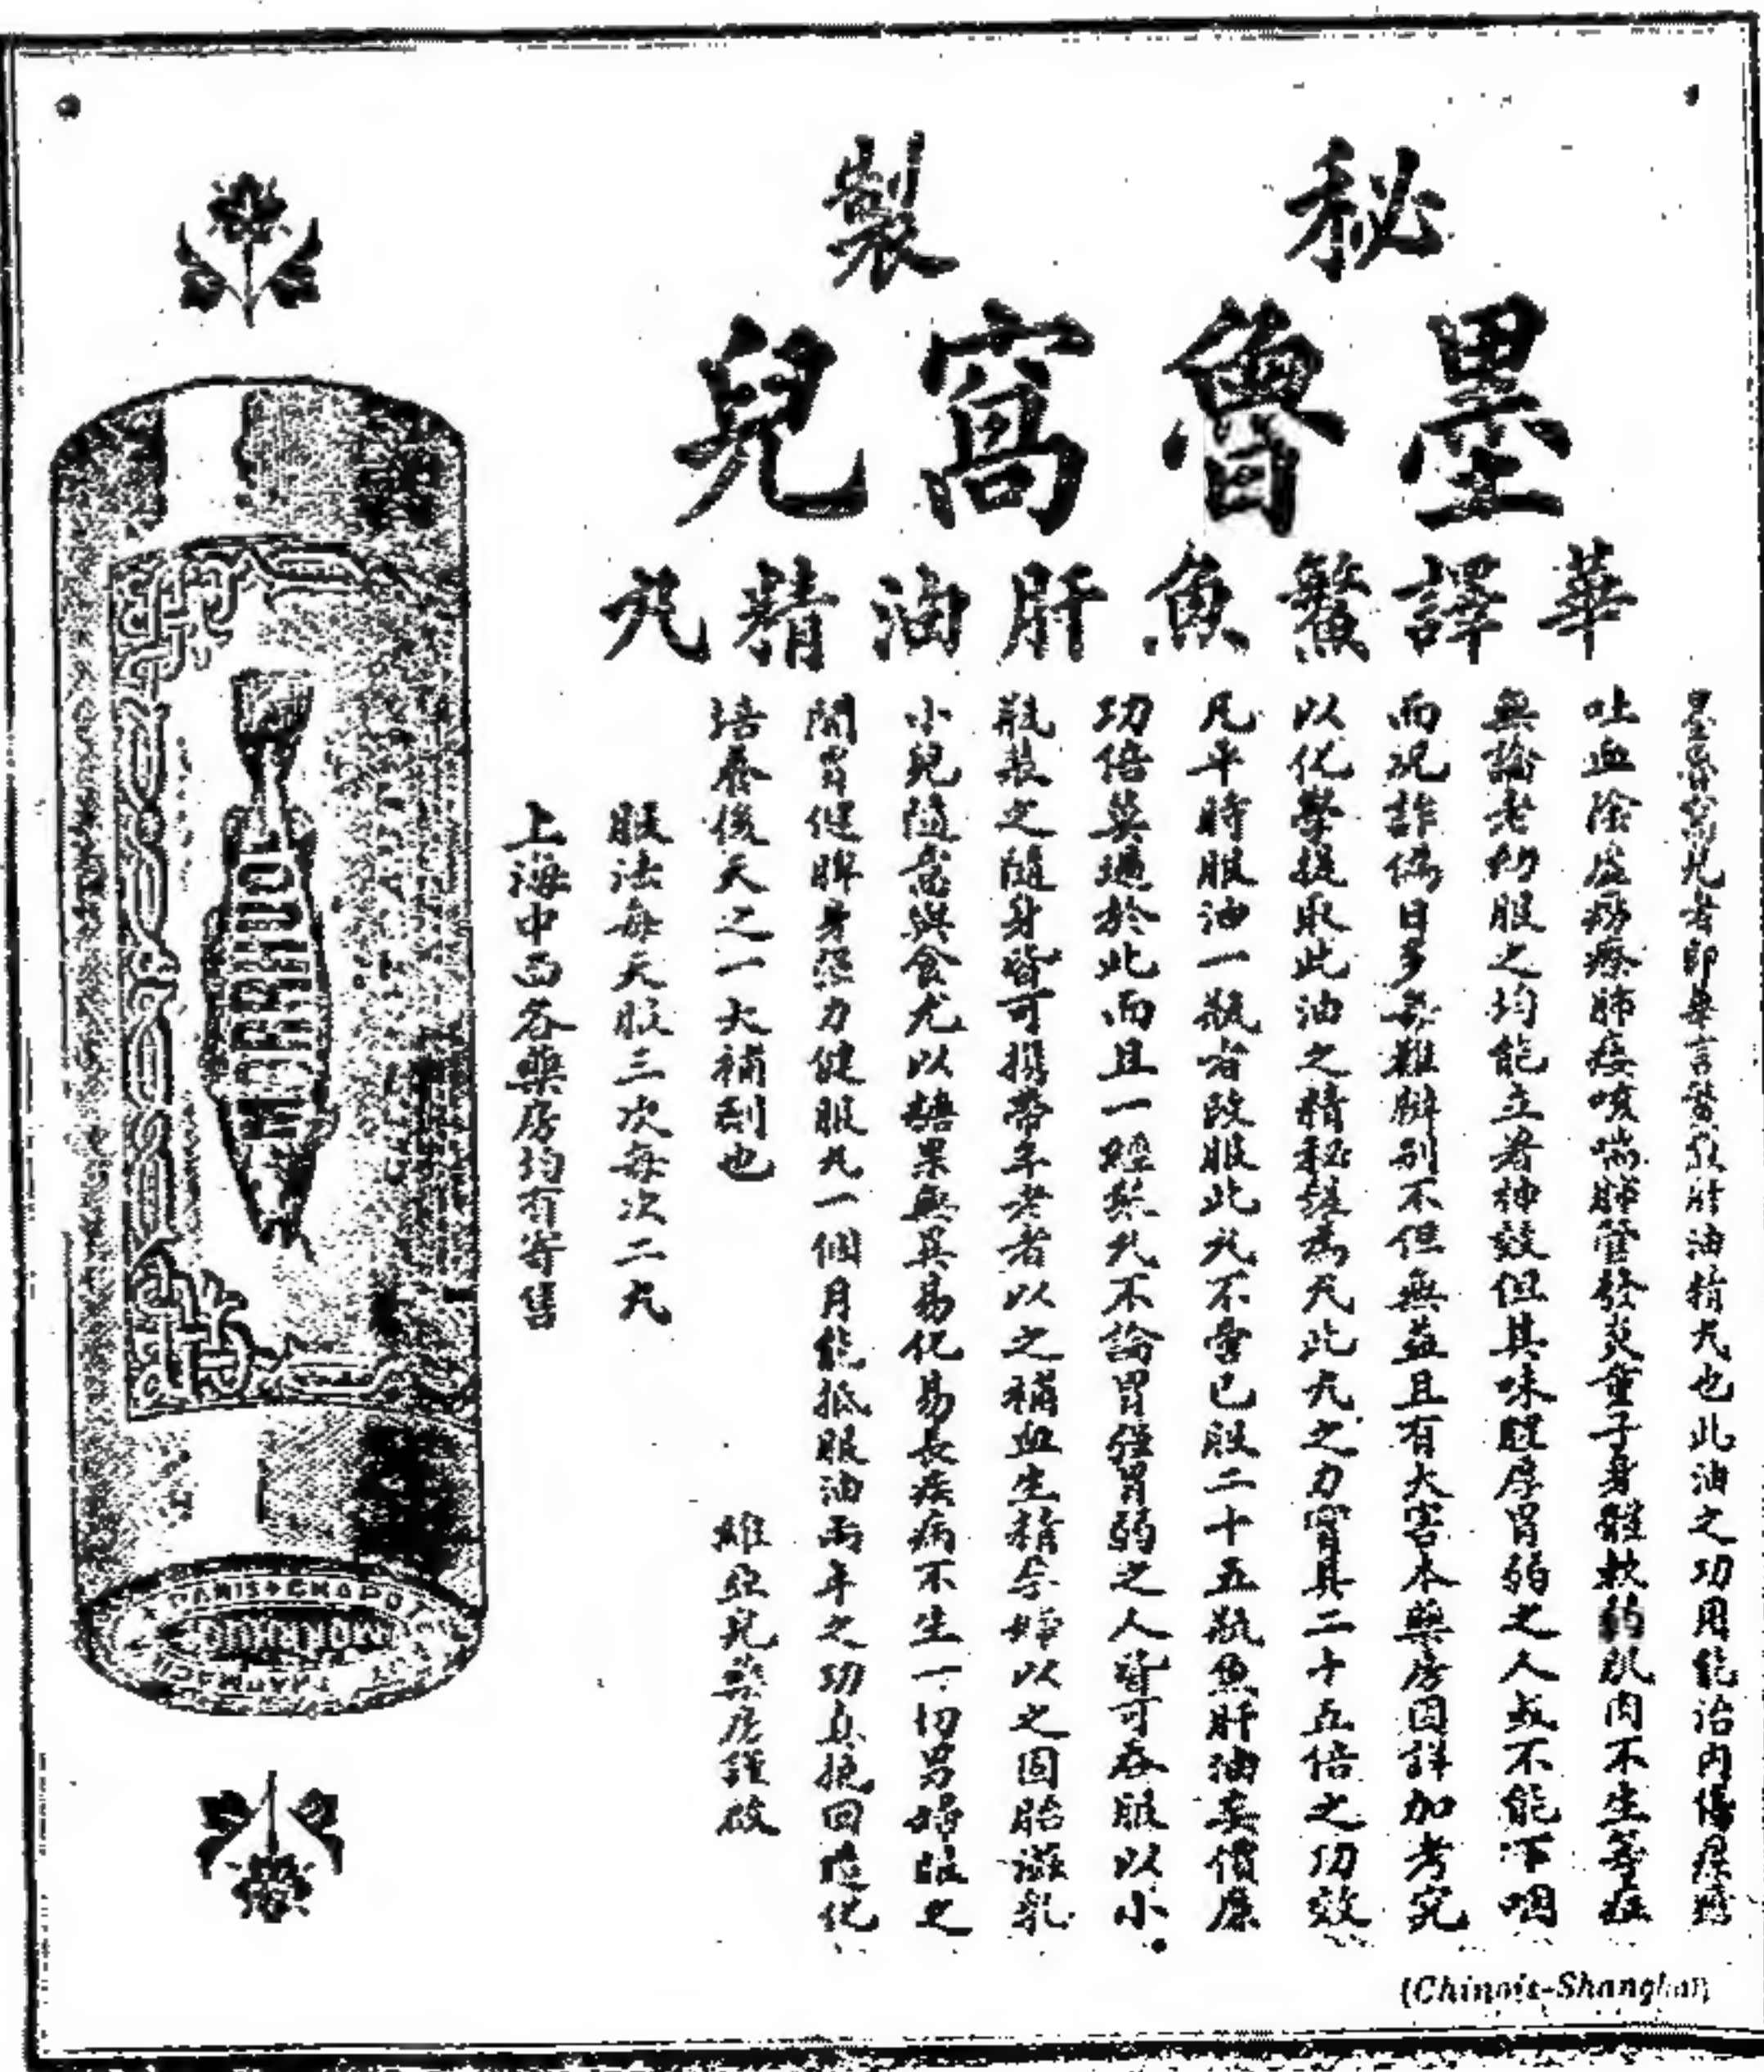 秘製
墨魯窩兒
華譯鱉魚肝油精丸
墨魯窩兒者即華言鱉魚肝油精丸也此油之功用能治內傷痰
吐血陰虛癆瘵肺痿咳喘肺管發炎童子身體軟弱肌肉不生等症
無論老幼服之均能立著神效但其味腥厚胃弱之人或不能下咽
而況詐偽日多無難辨別不但無益且有大害本藥房因詳加考究
以化學提取此油之精秘製為丸此丸之力實具二十五倍之功效
凡平時服油一瓶者改服此丸不啻已服二十五瓶魚肝油矣價廉
功倍莫過於此而且一經製丸不論胃強胃弱之人皆可吞服以小
瓶裝之隨身皆可攜帶年老者以之補血生精孕婦以之固胎滋乳
小兒隨意與食尤以糖果無異易化易長疾病不生一切男婦服之
開胃健脾身強力健服丸一個月能抵服油兩年之功真挽回造化
培養後天之一大補劑也
雅亞兒藥房謹啟
服法每天服三次每次二丸
上海中西各藥房均有寄售
MORRHUOL
PARIS
MORRHUOL
(Chinois-Shanghai)